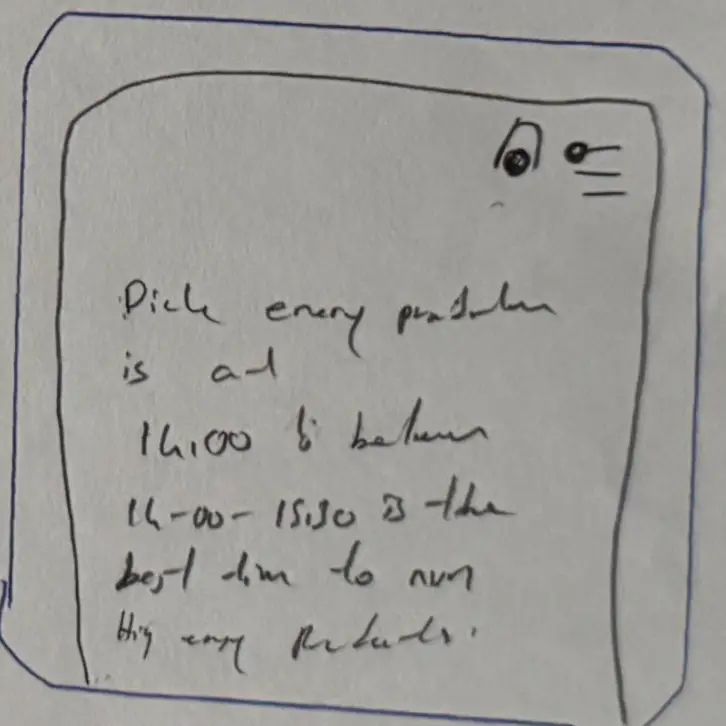 Pick energy production
is at
14.00 & between
14-00-15.30 is the
best time to run
High energy products.